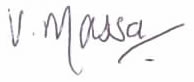 V. Massa